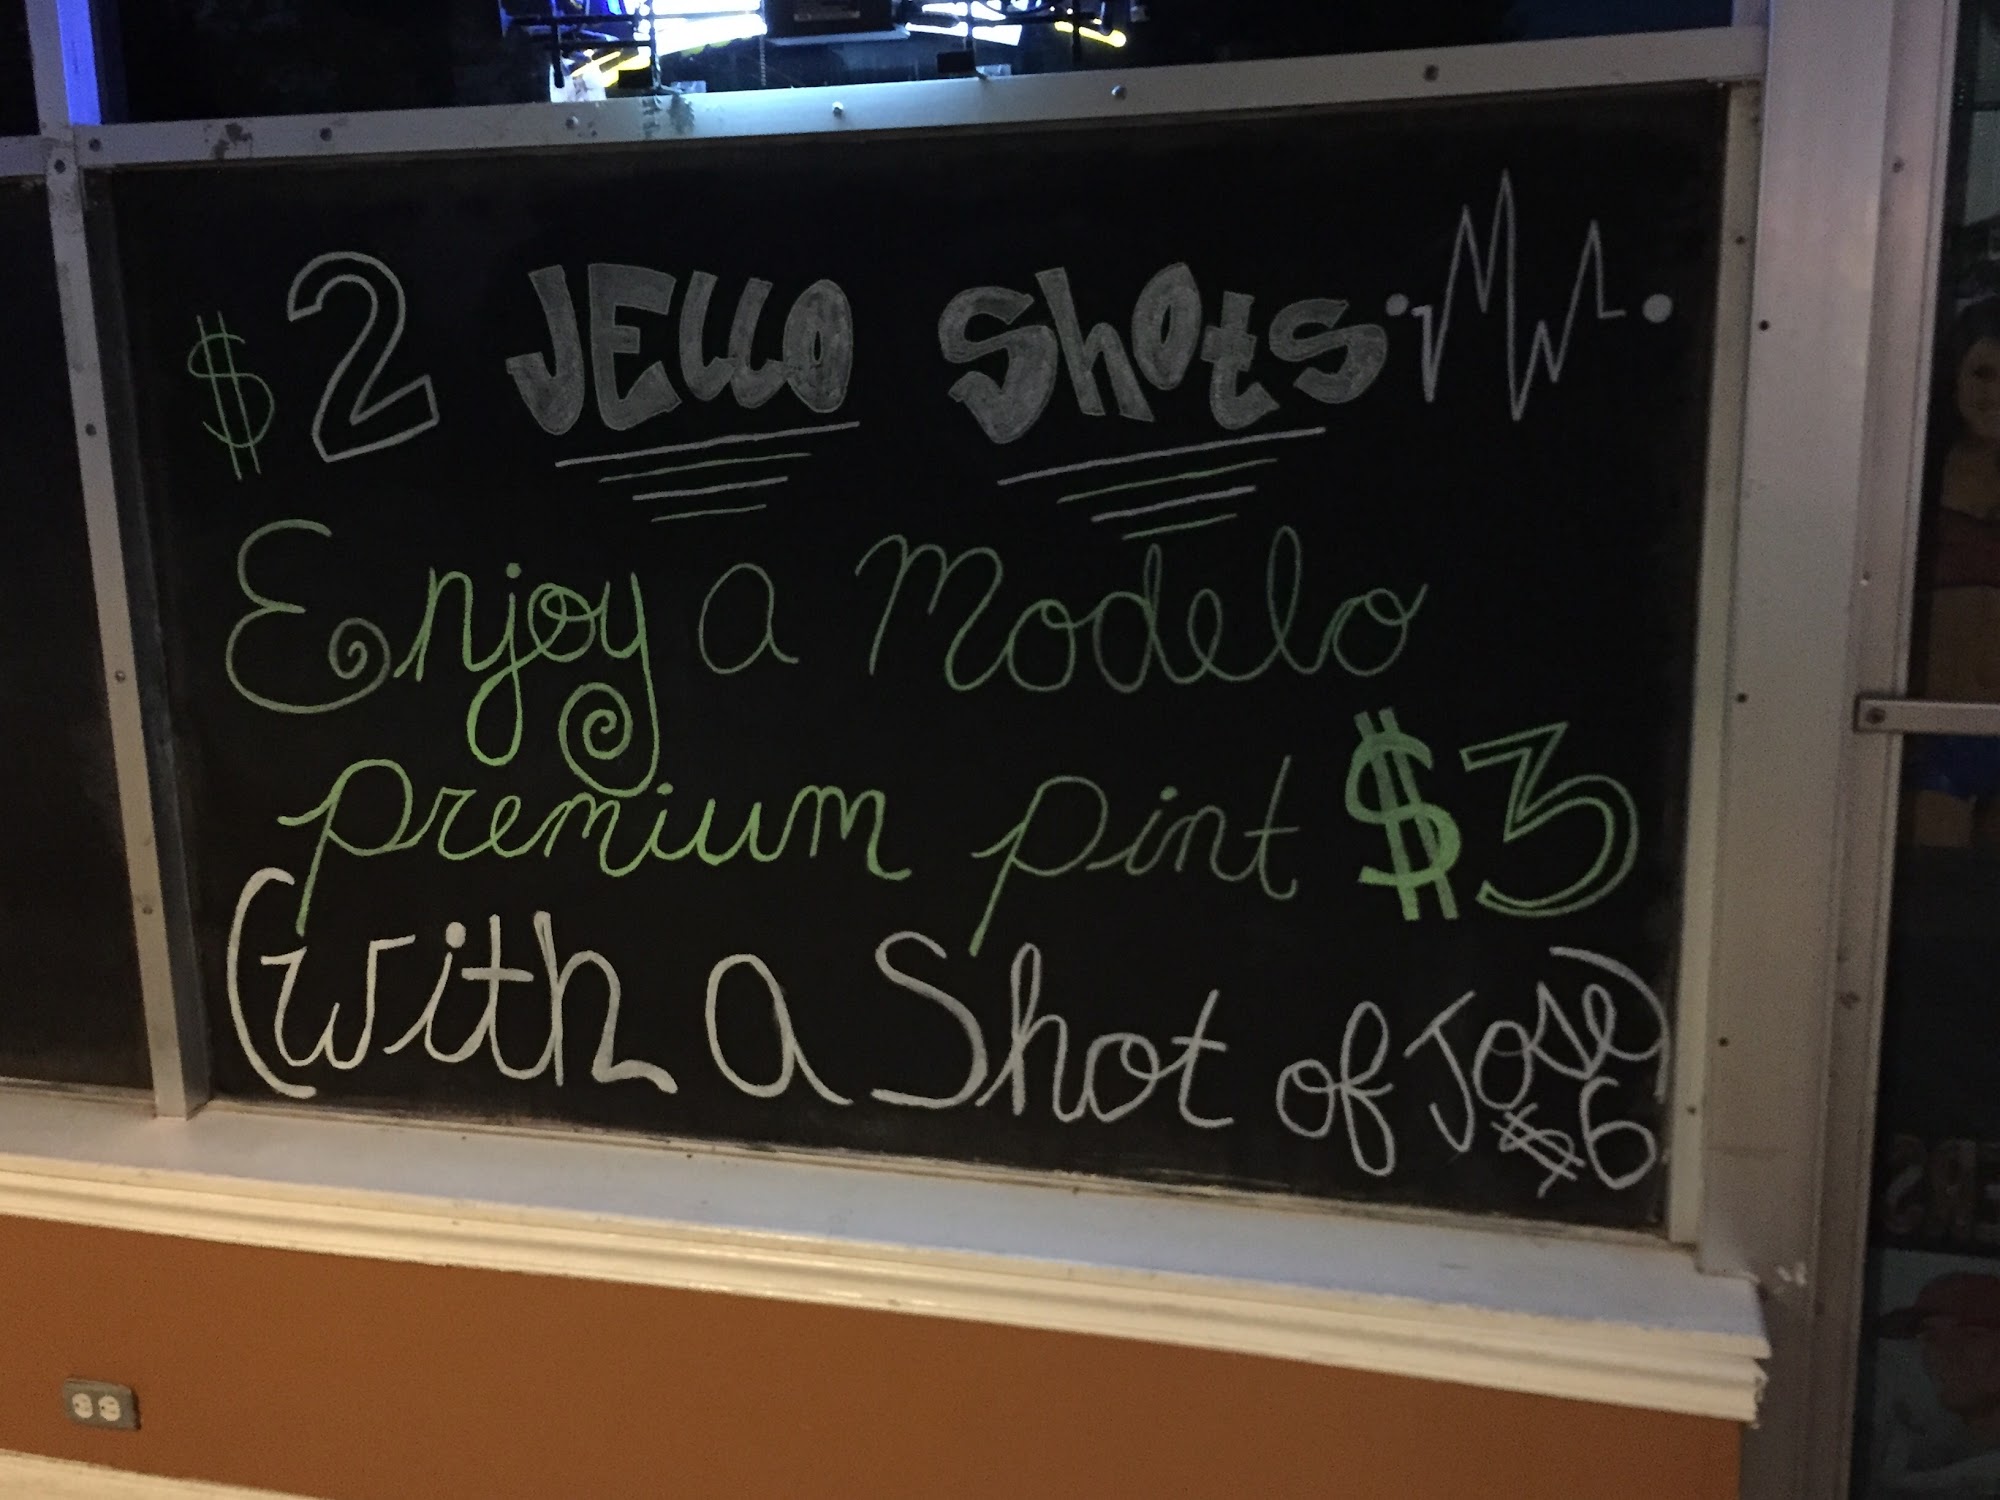 $2 JELLO Shots
Enjoy a Modelo
premium pint $3
(with a Shot of Jose)
$6